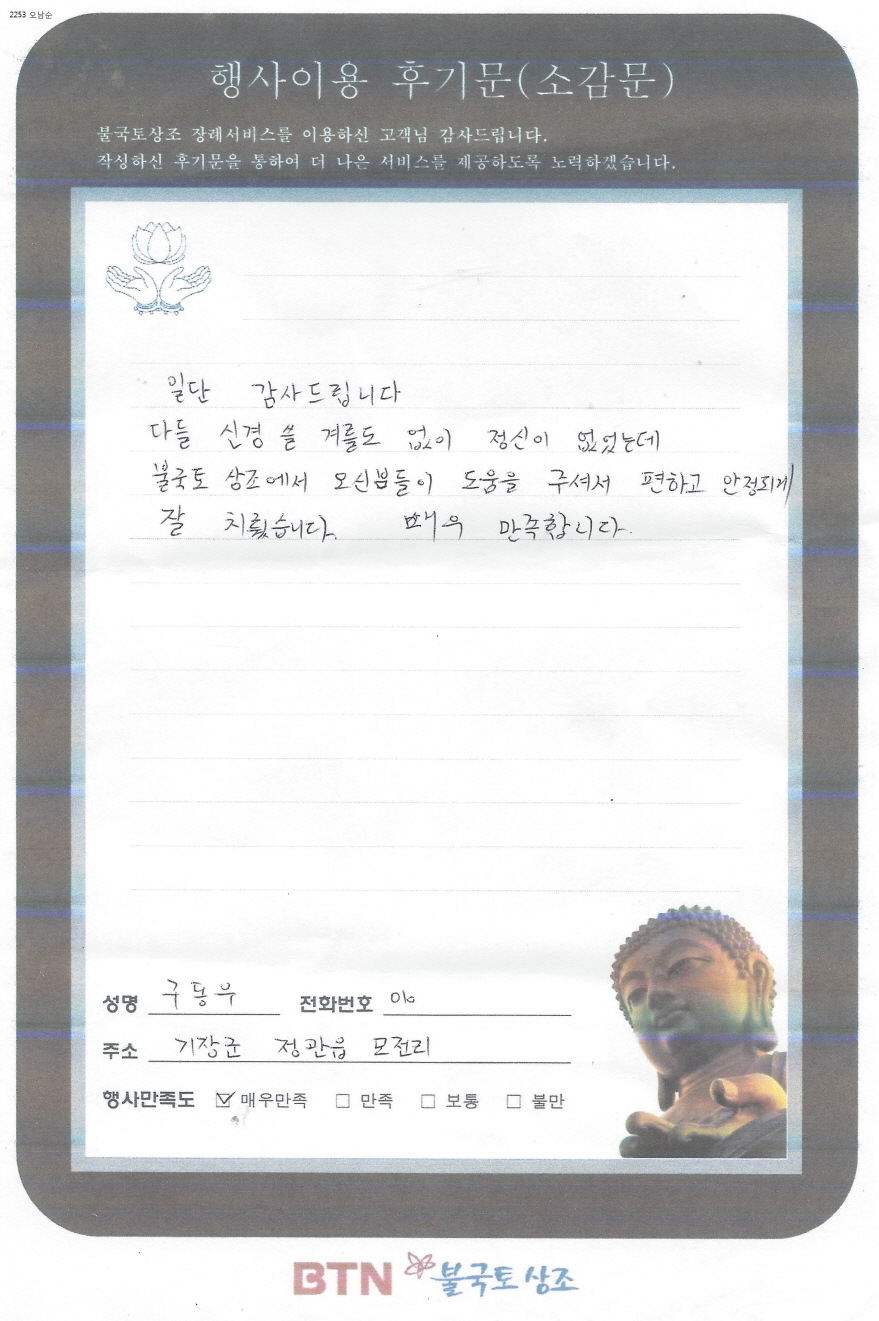 2253 오남순
행사이용 후기문(소감문)
불국토상조 장례서비스를 이용하신 고객님 감사드립니다.
작성하신 후기문을 통하여 더 나은 서비스를 제공하도록 노력하겠습니다.
일단 감사드립니다
다들 신경 쓸 겨를도 없이 정신이 없었는데
불국토 상조에서 오신분들이 도움을 주셔서 편하고 안정되게
잘 치뤘습니다. 매우 만족합니다.
성명 구동우 전화번호 010
주소 기장군 정관읍 모전리
행사만족도 ☑ 매우만족 □ 만족 □ 보통 □ 불만
BTN 불국토상조